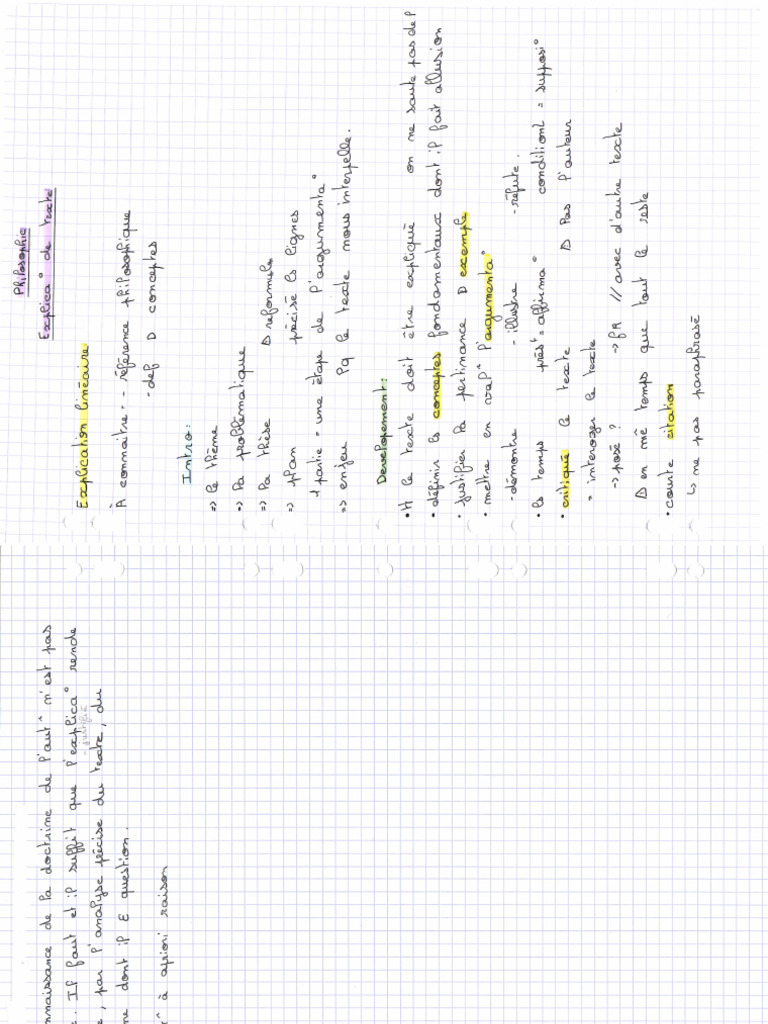 Philosophie
Explica° de texte
Explication linéaire
À connaitre : - référence philosophique
- def D conceptes
Intro :
=> le thème
=> la problématique
=> la thèse D reformulé
=> plan précisé ls lignes
↳ partie = une étape de l'argumenta°
=> enjeu Pq le texte nous interpelle.
Developement :
• tt le texte doit être expliqué on ne saute pas de P
• définir ls conceptes fondamentaux dont il fait allusion
• justifier la pertinance D exemple
• mettre en val^r l'argumenta°
- démontre - illustre - réfute.
• ls temps prést = affirma° conditionl = supposi°
• critiqué le texte D Pas l'auteur
= interoger le texte
-> posé ? -> fR // avec d'autre texte
D en mê temps que tout le reste
• courte citation
↳ ne pas paraphrasé
nnaissance de la doctrine de l'aut^r n'est pas
. Il faut et il suffit que l'explica° rende
- justifié
, par l'analyse précise du texte, du
me dont il E question.
à apriori raison